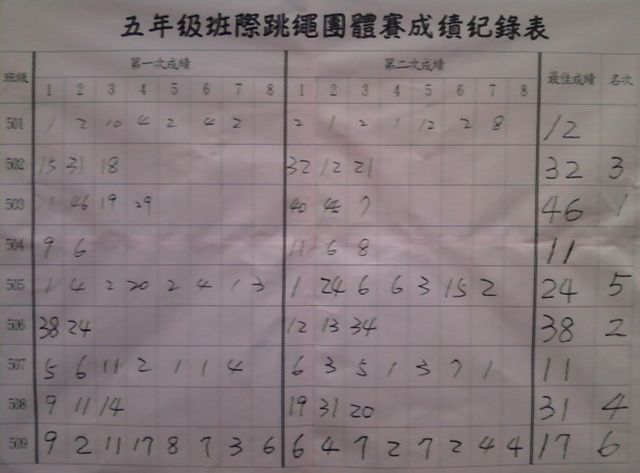 五年级班際跳繩團體賽成绩纪錄表
班級 第一次成績 第二次成績 最佳成績 名次
1 2 3 4 5 6 7 8 1 2 3 4 5 6 7 8
501 1 2 10 4 2 4 2 2 1 2 1 12 2 8 12
502 15 31 18 32 12 21 32 3
503 1 46 19 29 40 45 7 46 1
504 9 6 11 6 8 11
505 1 4 2 20 2 4 1 3 1 24 6 6 3 15 2 24 5
506 38 24 12 13 34 38 2
507 5 6 11 2 1 1 4 6 3 5 1 3 7 1 11
508 9 11 14 19 31 20 31 4
509 9 2 11 17 8 7 3 6 6 4 7 2 7 2 4 4 17 6